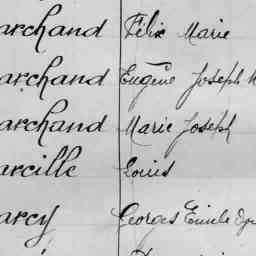 archand Félix Marie
archand Eugène Joseph
archand Marie Joseph
arcille Louis
arcy Georges Emile